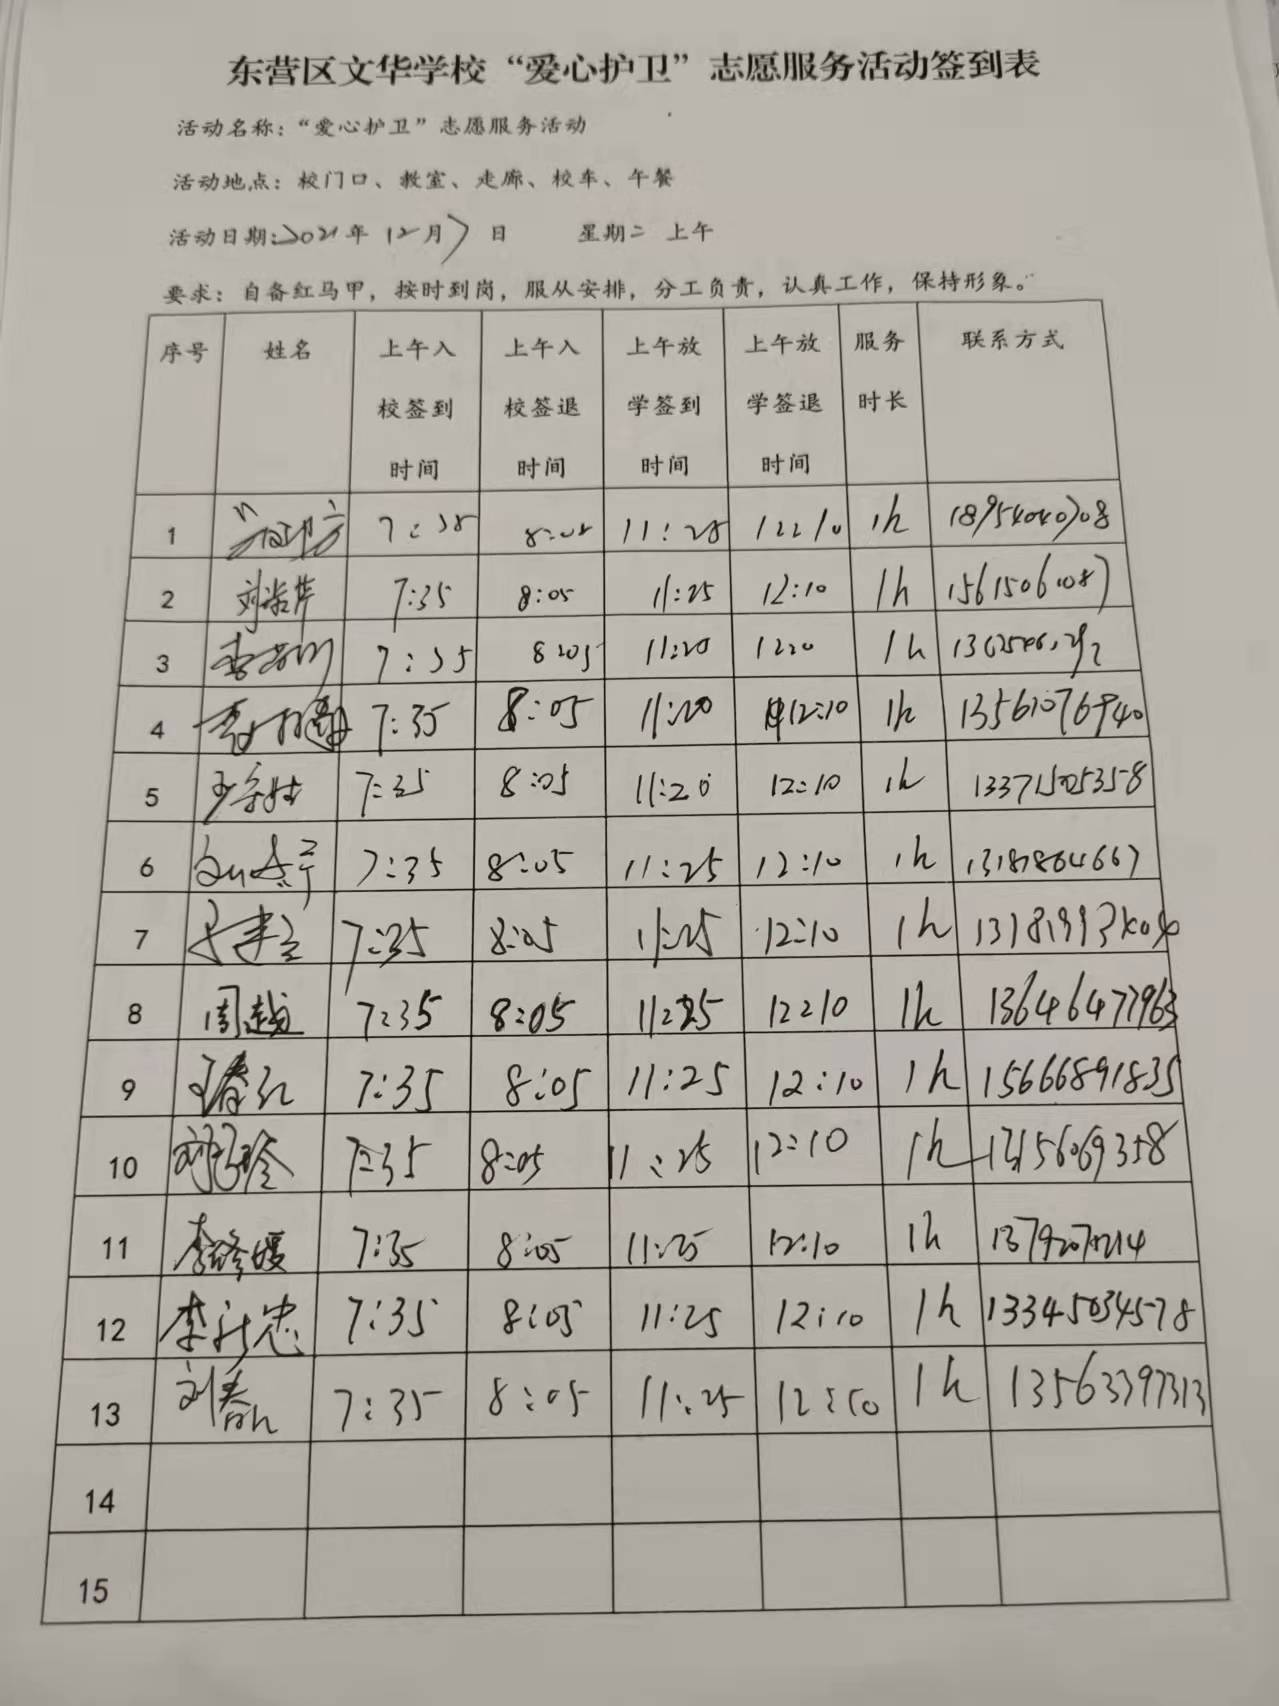 东营区文华学校“爱心护卫”志愿服务活动签到表
活动名称：“爱心护卫”志愿服务活动
活动地点：校门口、教室、走廊、校车、午餐
活动日期：2021年 12月7日 星期二 上午
要求：自备红马甲，按时到岗，服从安排，分工负责，认真工作，保持形象。
序号 姓名 上午入校签到时间 上午入校签退时间 上午放学签到时间 上午放学签退时间 服务时长 联系方式
1 11:28 12:10 1h 18954040708
2 7:35 8:05 11:25 12:10 1h
3 7:35 8:05 11:20 1h
4 7:35 8:05 11:20 12:10 1h
5 7:35 8:05 11:20 12:10 1h
6 7:35 8:05 11:25 12:10 1h
7 7:35 8:05 11:25 12:10 1h
8 周越 7:35 8:05 11:25 12:10 1h 13646477963
9 王春红 7:35 8:05 11:25 12:10 1h 15666891835
10 7:35 8:05 11:25 12:10 1h
11 李修媛 7:35 8:05 11:25 12:10 1h
12 李新忠 7:35 8:05 11:25 12:10 1h 13345034578
13 7:35 8:05 11:25 12:10 1h 13563397313
14
15